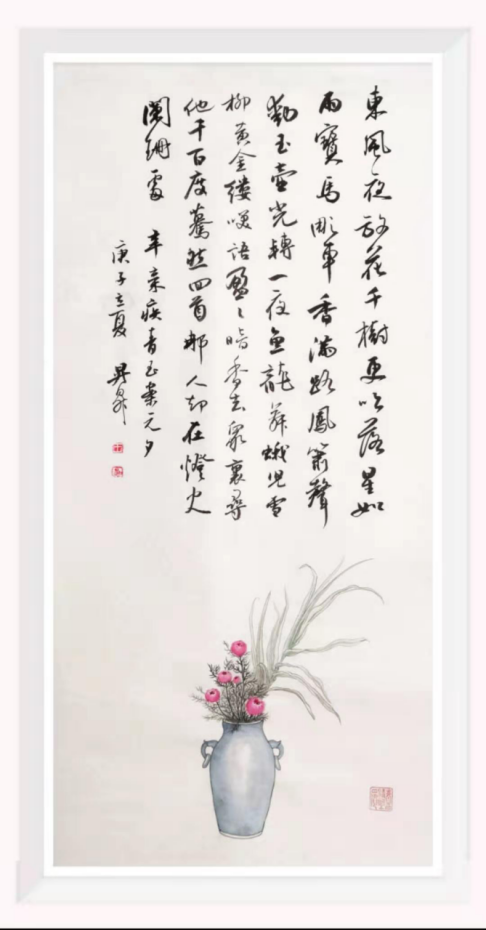 東風夜放花千樹更吹落星如
雨寶馬彫車香滿路鳳簫聲
動玉壺光轉一夜魚龍舞蛾兒雪
柳黃金縷咲語盈〻暗香去衆裏尋
他千百度驀然回首那人却在燈火
闌珊處 辛棄疾青玉案元夕
庚子立夏 昇